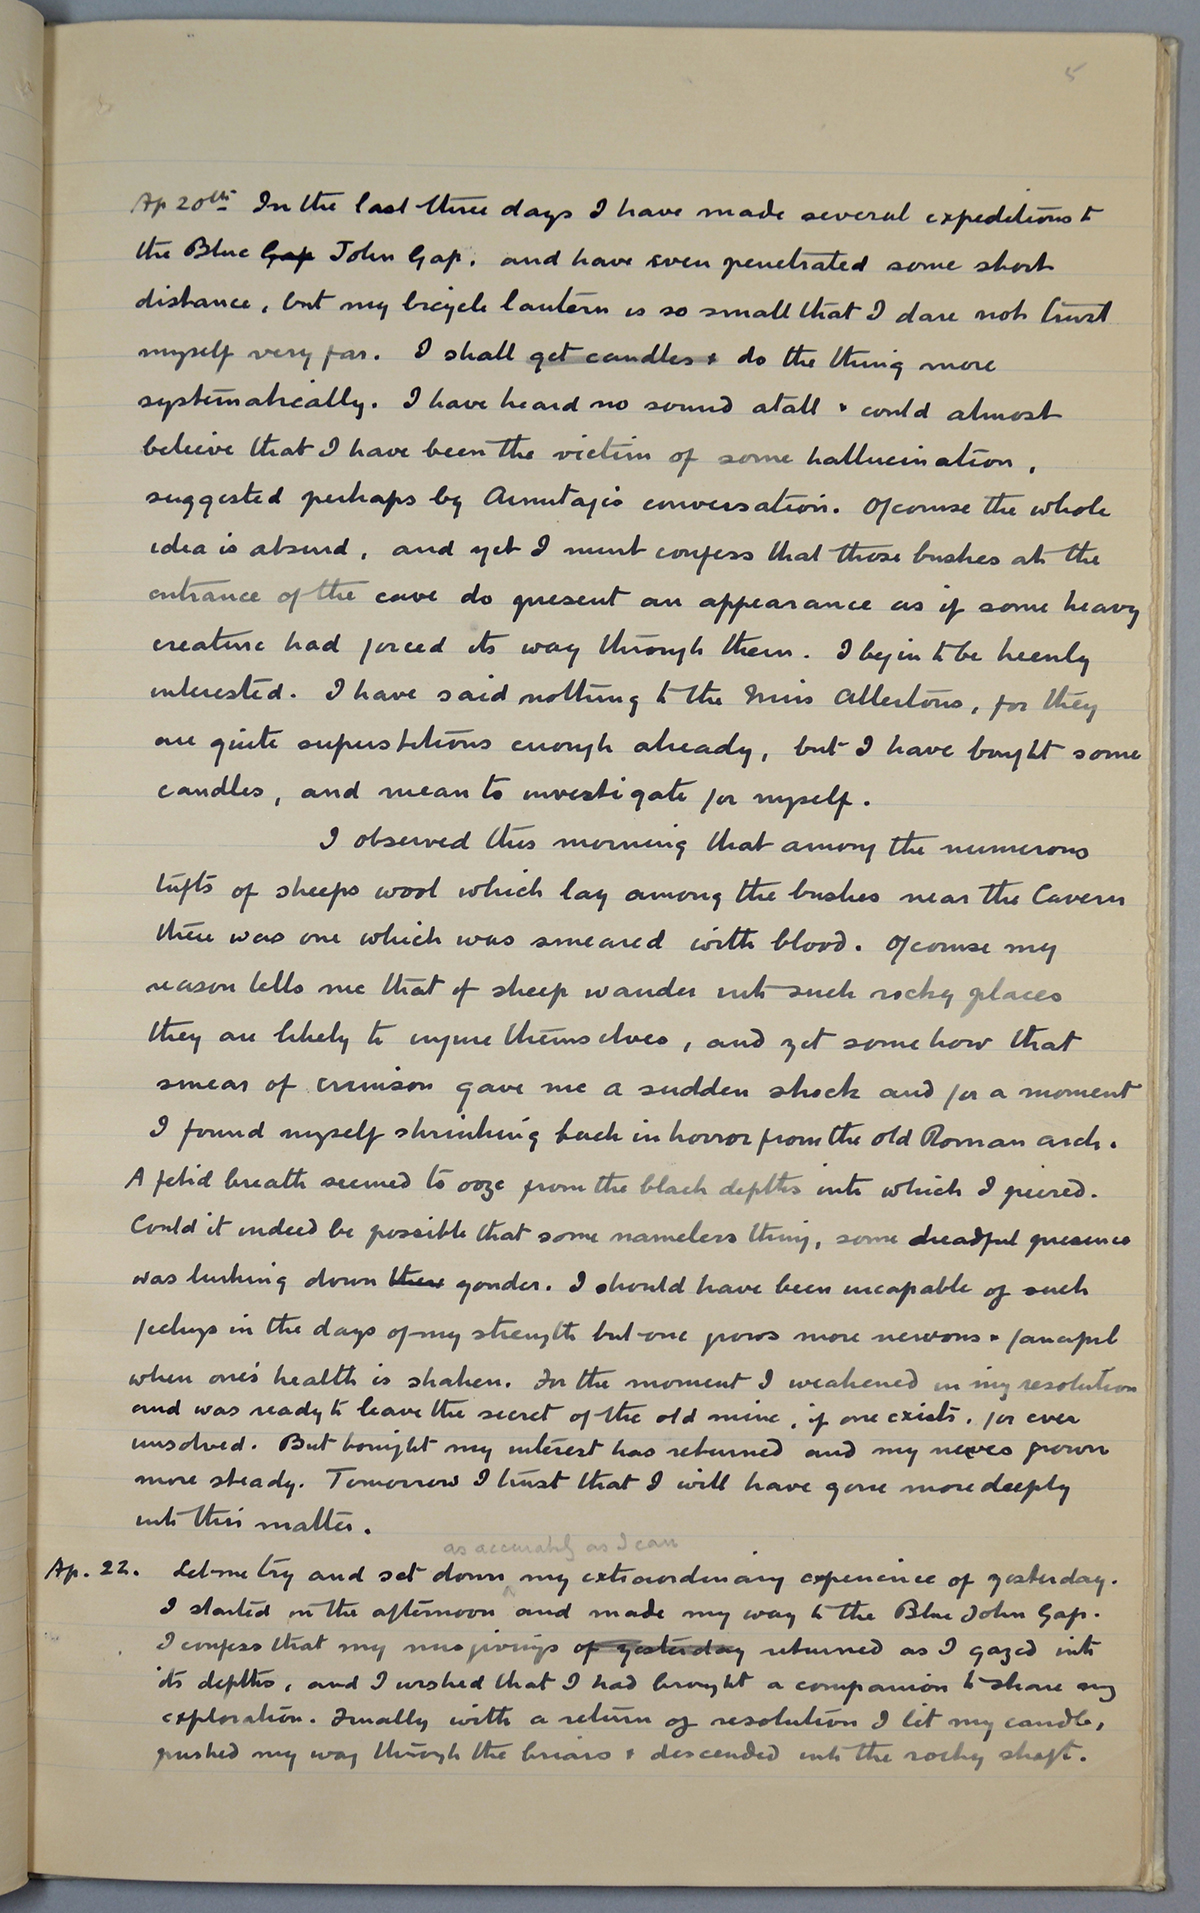 5
Ap 20th In the last three days I have made several expeditions to
the Blue Gap John Gap, and have even penetrated some short
distance, but my bicycle lantern is so small that I dare not trust
myself very far. I shall get candles & do the thing more
systematically. I have heard no sound atall & could almost
believe that I have been the victim of some hallucination,
suggested perhaps by Armitage's conversation. Ofcourse the whole
idea is absurd, and yet I must confess that those bushes at the
entrance of the cave do present an appearance as if some heavy
creature had forced its way through them. I begin to be keenly
interested. I have said nothing to the Miss Allertons, for they
are quite superstitious enough already, but I have bought some
candles, and mean to investigate for myself.
I observed this morning that among the numerous
tufts of sheeps wool which lay among the bushes near the Cavern
there was one which was smeared with blood. Ofcourse my
reason tells me that if sheep wander into such rocky places
they are likely to injure themselves, and yet somehow that
smear of crimson gave me a sudden shock and for a moment
I found myself shrinking back in horror from the old Roman arch.
A fetid breath seemed to ooze from the black depths into which I peered.
Could it indeed be possible that some nameless thing, some dreadful presence
was lurking down there yonder. I should have been incapable of such
feelings in the days of my strength but one grows more nervous & fanciful
when one's health is shaken. For the moment I weakened in my resolution
and was ready to leave the secret of the old mine, if one exists, for ever
unsolved. But tonight my interest has returned and my nerves grown
more steady. Tomorrow I trust that I will have gone more deeply
into this matter.
as accurately as I can
Ap. 22. Let me try and set down my extraordinary experience of yesterday.
I started in the afternoon and made my way to the Blue John Gap.
I confess that my misgivings of yesterday returned as I gazed into
its depths, and I wished that I had brought a companion to share my
exploration. Finally with a return of resolution I lit my candle,
pushed my way through the briars & descended into the rocky shaft.